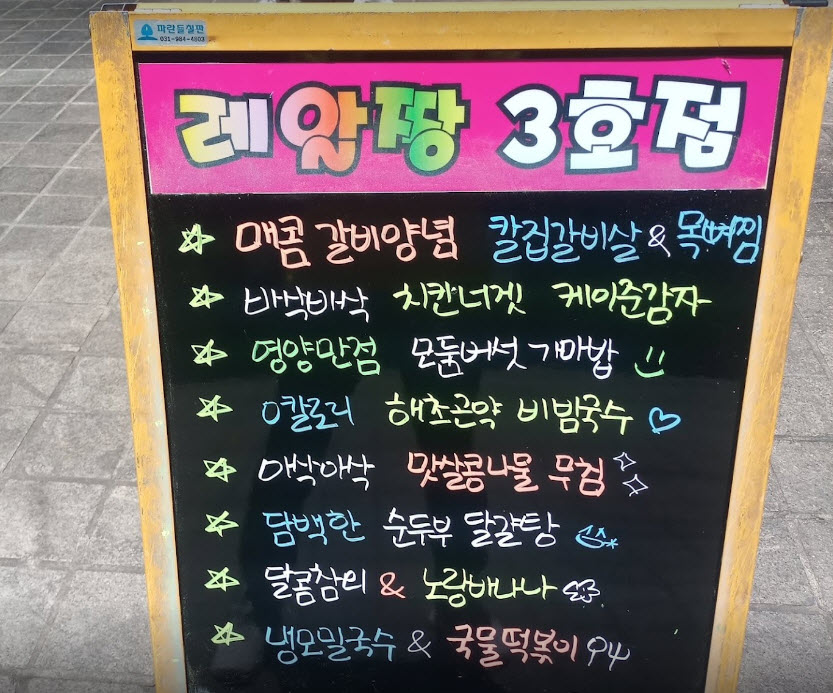 파란들칠판
031-984-4803
레알짱 3호점
매콤 갈비양념 칼집갈비살 & 목뼈찜
바삭바삭 치킨너겟 케이준감자
영양만점 모둠버섯 가마밥
0칼로리 해초곤약 비빔국수
아삭아삭 맛살콩나물 무침
담백한 순두부 달걀탕
달콤참외 & 노랑바나나
냉모밀국수 & 국물떡볶이